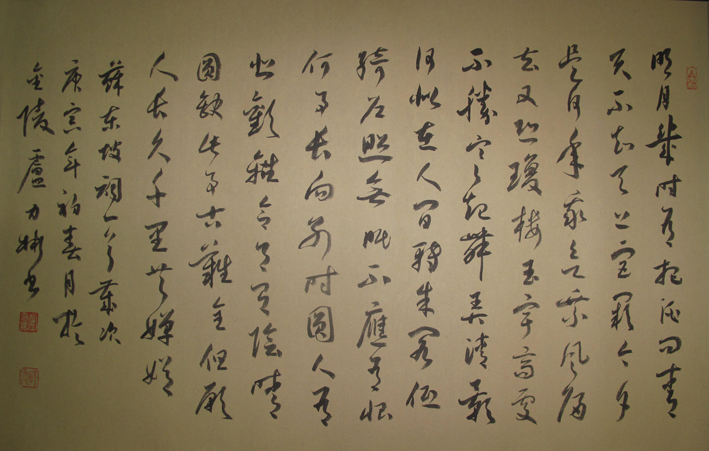 明月幾時有把酒問青
天不知天上宮闕今夕
是何年我欲乘風歸
去又恐瓊樓玉宇高處
不勝寒起舞弄清影
何似在人間轉朱閣低
綺戶照無眠不應有恨
何事長向別時圓人有
悲歡離合月有陰晴
圓缺此事古難全但願
人長久千里共嬋娟
蘇東坡詞一首歲次
庚寅年初春月於
金陵盧力彬書